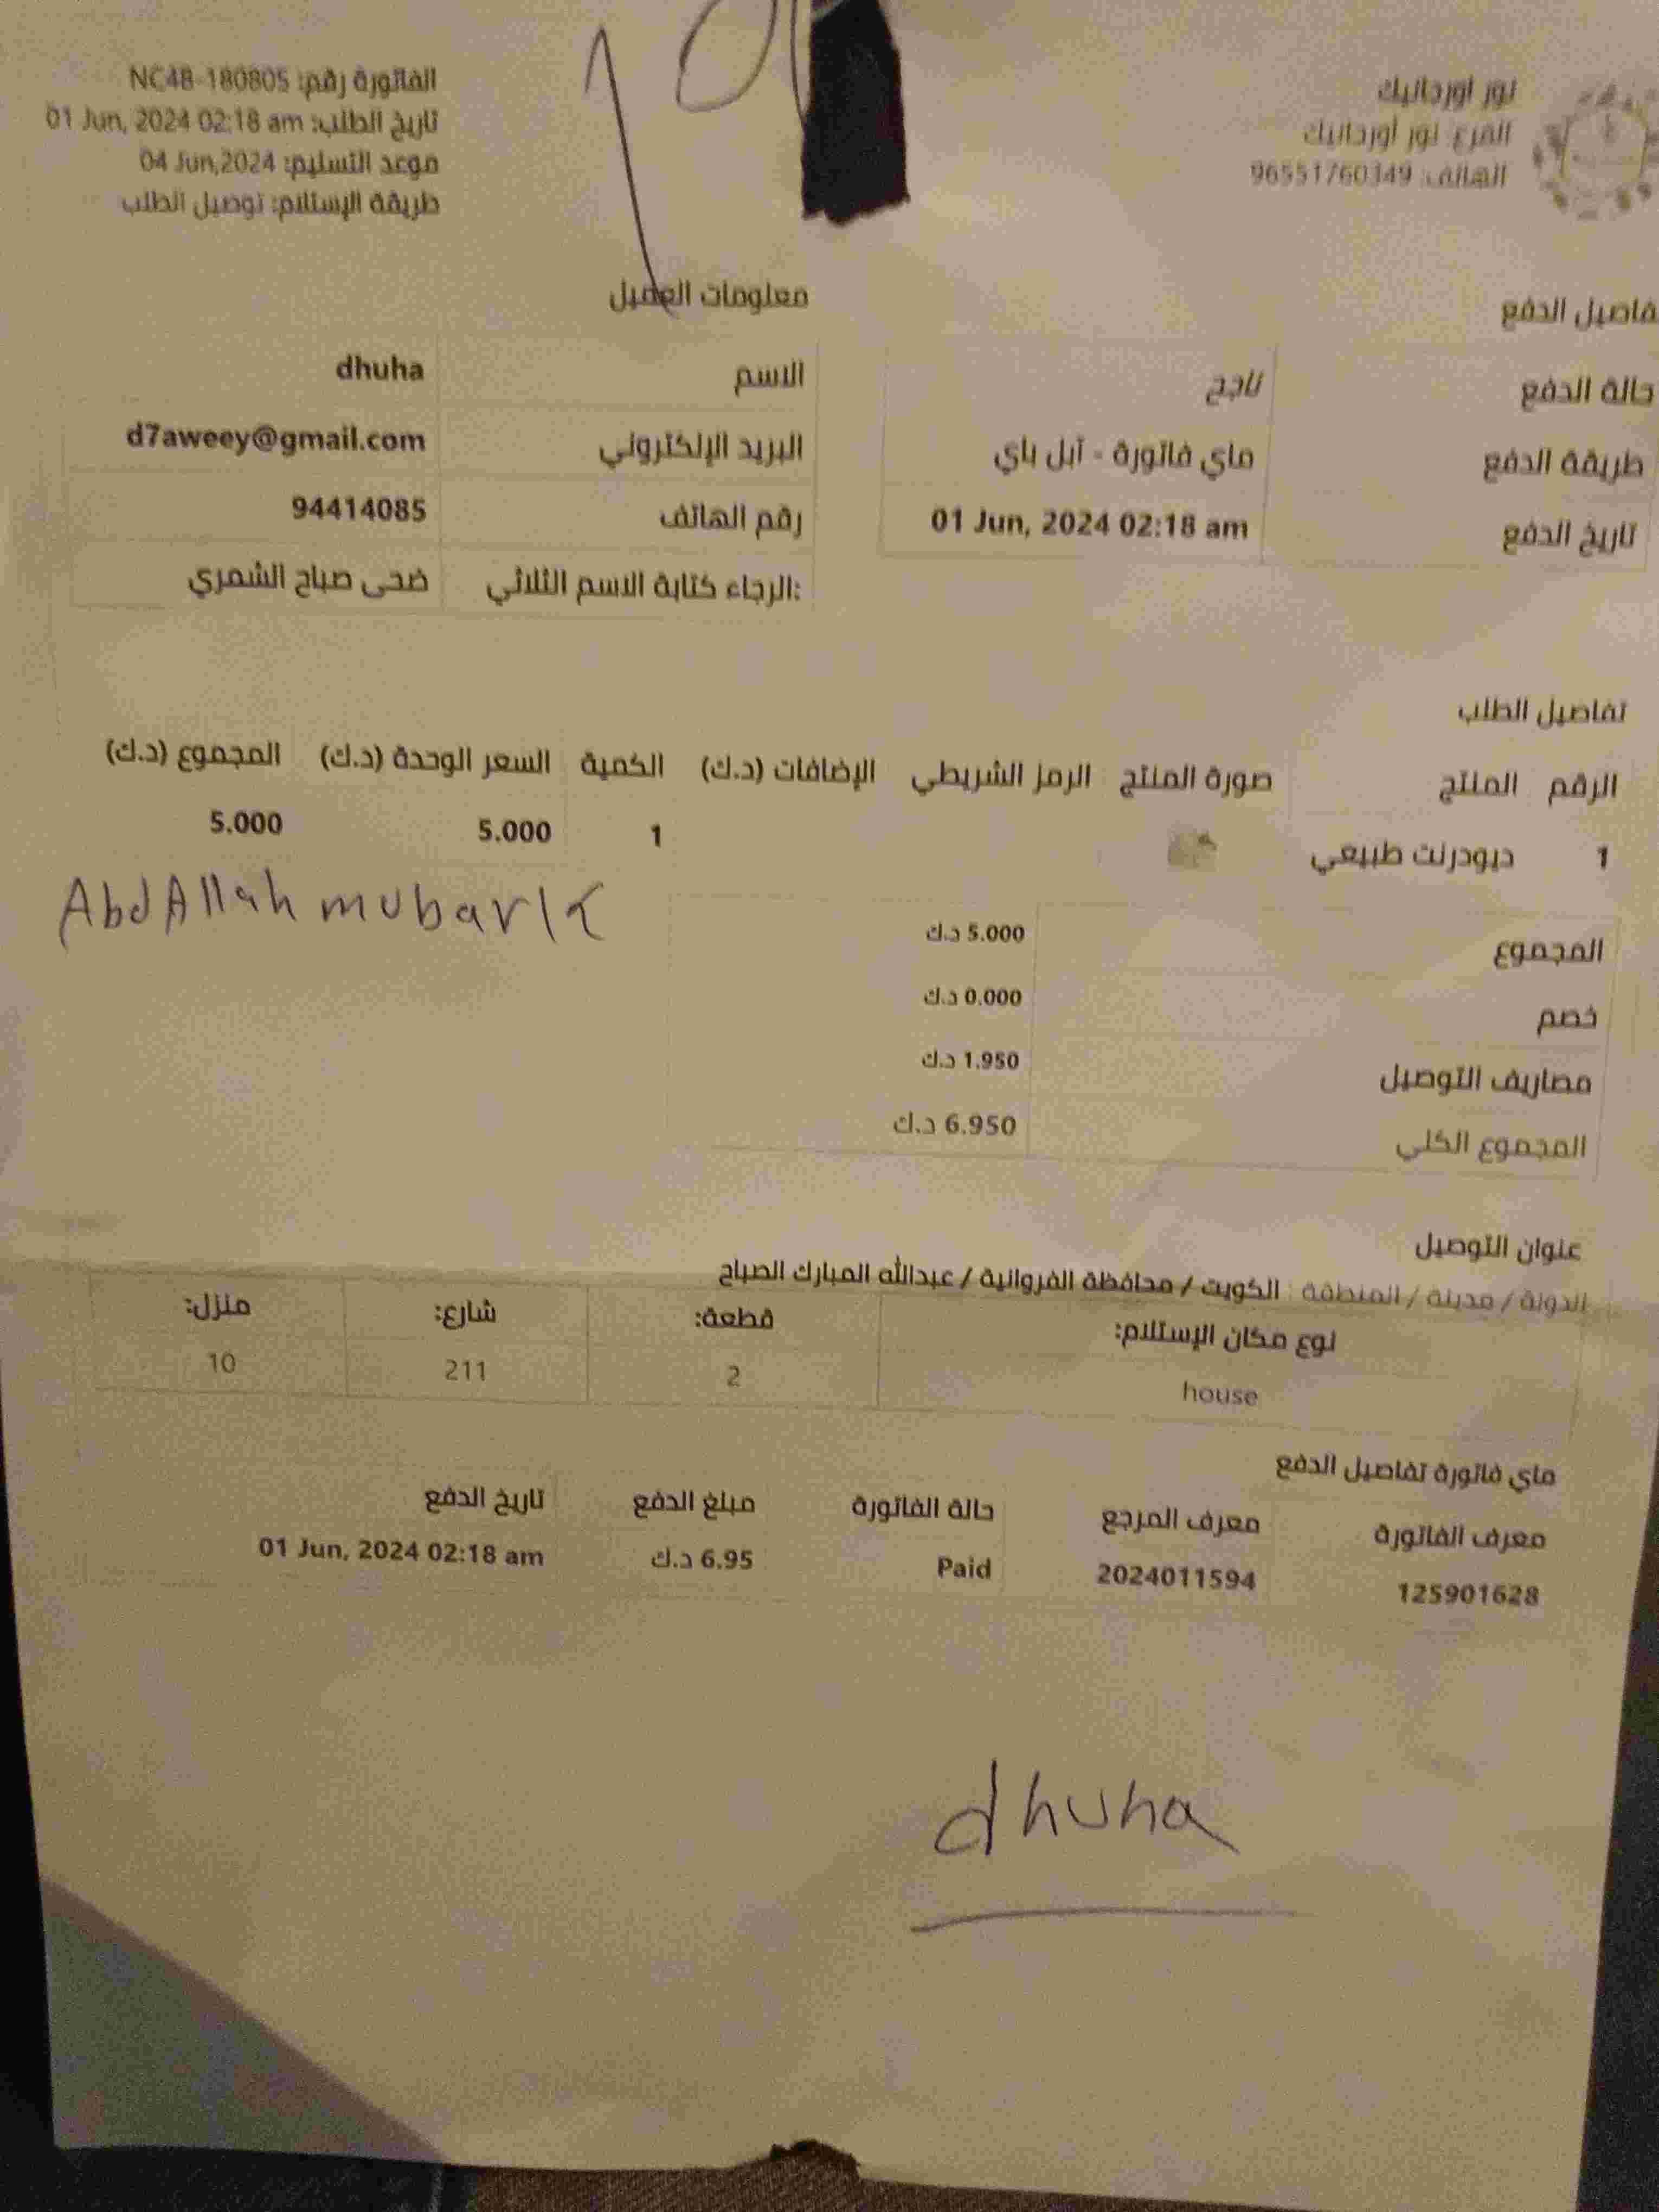 نور اورجانيك
الفرع: نور أورجانيك
الهاتف: 96551760349
الفاتورة رقم: NC48-180805
تاريخ الطلب: 01 Jun, 2024 02:18 am
موعد التسليم: 04 Jun,2024
طريقة الإستلام: توصيل الطلب
فاصيل الدفع
حالة الدفع ناجح
طريقة الدفع ماي فاتورة - آبل باي
تاريخ الدفع 01 Jun, 2024 02:18 am
معلومات العميل
الاسم dhuha
البريد الإلكتروني d7aweey@gmail.com
رقم الهاتف 94414085
:الرجاء كتابة الاسم الثلاثي ضحى صباح الشمري
تفاصيل الطلب
الرقم المنتج صورة المنتج الرمز الشريطي الإضافات (د.ك) الكمية السعر الوحدة (د.ك) المجموع (د.ك)
1 ديودرنت طبيعي 1 5.000 5.000
AbdAllah mubark
المجموع 5.000 د.ك
خصم 0.000 د.ك
مصاريف التوصيل 1.950 د.ك
المجموع الكلي 6.950 د.ك
عنوان التوصيل
الدولة / مدينة / المنطقة : الكويت / محافظة الفروانية / عبدالله المبارك الصباح
نوع مكان الإستلام: قطعة: شارع: منزل:
house 2 211 10
ماي فاتورة تفاصيل الدفع
معرف الفاتورة معرف المرجع حالة الفاتورة مبلغ الدفع تاريخ الدفع
125901628 2024011594 Paid 6.95 د.ك 01 Jun, 2024 02:18 am
dhuha